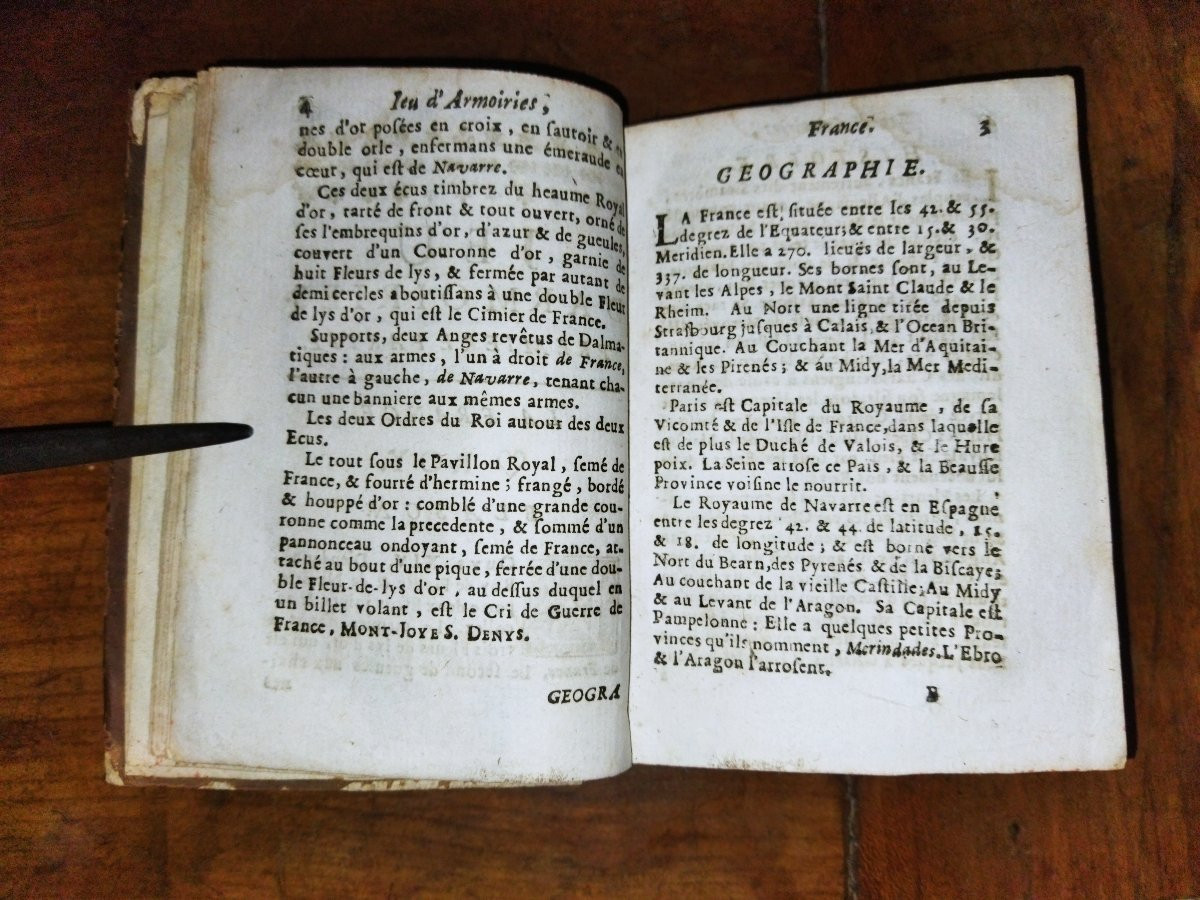 4 Ieu d'Armoiries,
nes d'or posées en croix, en sautoir & en
double orle, enfermans une émeraude en
cœur, qui est de Navarre.
Ces deux écus timbrez du heaume Royal
d'or, tarté de front & tout ouvert, orné de
ses lembrequins d'or, d'azur & de gueules,
couvert d'un Couronne d'or, garnie de
huit Fleurs de lys, & fermée par autant de
demi cercles aboutissans à une double Fleur
de lys d'or, qui est le Cimier de France.
Supports, deux Anges revêtus de Dalma-
tiques : aux armes, l'un à droit de France,
l'autre à gauche, de Navarre, tenant cha-
cun une banniere aux mêmes armes.
Les deux Ordres du Roi autour des deux
Ecus.
Le tout sous le Pavillon Royal, semé de
France, & fourré d'hermine ; frangé, bordé
& houppé d'or : comblé d'une grande cou-
ronne comme la precedente, & sommé d'un
pannonceau ondoyant, semé de France, at-
taché au bout d'une pique, ferrée d'une dou-
ble Fleur-de-lys d'or, au dessus duquel en
un billet volant, est le Cri de Guerre de
France, MONT-JOYE S. DENYS.
GEOGRA
France. 3
GEOGRAPHIE.
LA France est, située entre les 42. & 55.
degrez de l'Equateur; & entre 15. & 30.
Meridien. Elle a 270. lieuës de largeur, &
337. de longueur. Ses bornes sont, au Le-
vant les Alpes, le Mont Saint Claude & le
Rheim. Au Nort une ligne titée depuis
Strasbourg jusques à Calais, & l'Ocean Bri-
tannique. Au Couchant la Mer d'Aquitai-
ne & les Pirenés ; & au Midy, la Mer Medi-
terranée.
Paris est Capitale du Royaume, de sa
Vicomté & de l'Isle de France, dans laquelle
est de plus le Duché de Valois, & le Hure
poix. La Seine arrose ce Pais, & la Beausse
Province voisine le nourrit.
Le Royaume de Navarre est en Espagne
entre les degrez 42. & 44. de latitude, 15.
& 18. de longitude ; & est borné vers le
Nort du Bearn, des Pyrenés & de la Biscaye;
Au couchant de la vieille Castille; Au Midy
& au Levant de l'Aragon. Sa Capitale est
Pampelonne : Elle a quelques petites Pro-
vinces qu'ils nomment, Merindades. L'Ebro
& l'Aragon l'arrosent.
B